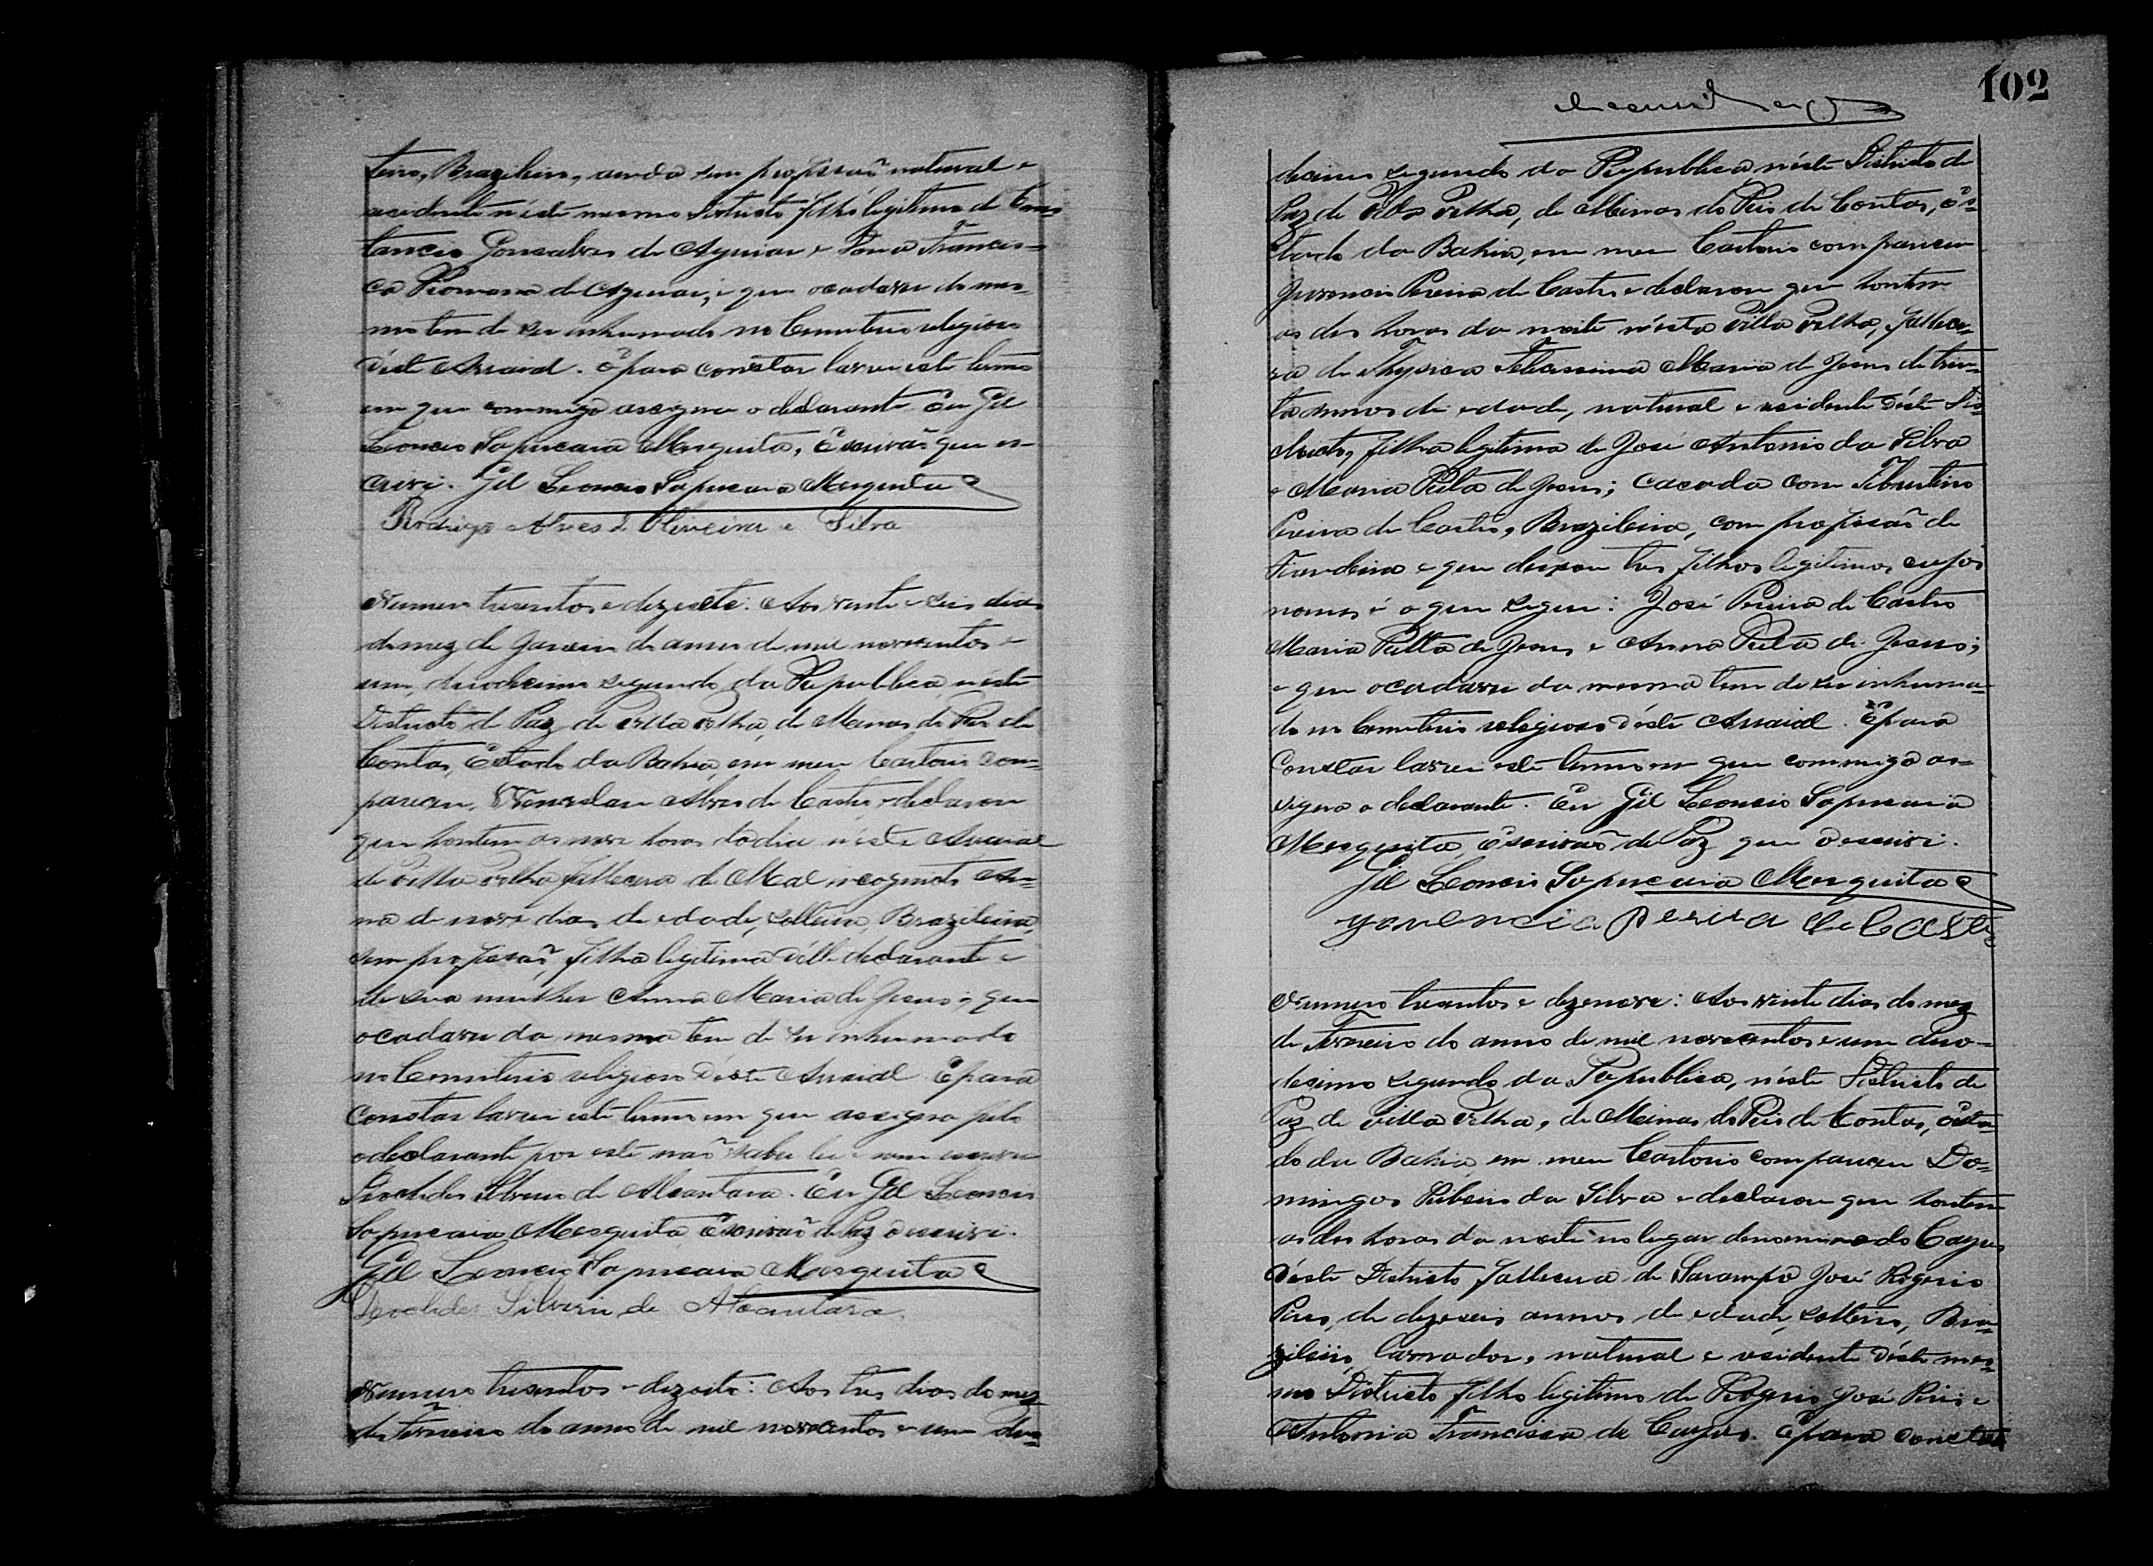 teiro, Brazileiro, ainda sem profissaõ natural e
residente n'este mesmo Districto filho legitimo de Cons
tancio Gonsalves de Aguiar e Dona Francis-
ca Romana de Aguiar, e que o cadaver do mes-
mo tem de ser inhumado no Cemiterio religioso
d'este Arraial. E para constar lavrei este termo
em que commigo assigna o declarante. Eu Gil
Leoncio Sapucaia Mesquita, Escrivaõ que es-
crivi. Gil Leoncio Sapucaia Mesquita
Rodrigo Alves d'Oliveira e Silva
Numero tresentos e dezesete: Aos vinte e seis dias
do mez de Janeiro do anno de mil novecentos e
um, duodecimo segundo da Republica n'este
Districto de Paz de Villa Velha, de Minas do Rio de
Contas, Estado da Bahia, em meu Cartorio com-
pareceu Wenceslau Alves de Castro e declarou
que hontem as nove horas do dia n'este Arraial
de Villa Velha fallecera de Mal incognito An-
na de nove dias de edade, solteira, Brazileira,
sem profissaõ, filha legitima d'elle declarante e
de sua mulher Anna Maria de Jesus; que
o cadaver da mesma tem de ser inhumado
no Cemiterio religioso d'este Arraial. E para
constar lavrei este termo em que assigna pelo
o declarante por este naõ saber ler e nem escrever
Deoclides Silverio de Alcantara. Eu Gil Leoncio
Sapucaia Mesquita Escrivaõ de Paz o escrivi.
Gil Leoncio Sapucaia Mesquita
Deoclides Silverio de Alcantara
Numero tresentos e dezoito: Aos tres dias do mez
de Fevereiro do anno de mil novecentos e um duo-
102
decimo segundo da Republica n'este Districto de
Paz de Villa Velha, de Minas do Rio de Contas, Es-
tado da Bahia, em meu Cartorio compareceu
Juvencio Pereira de Castro e declarou que hontem
as des horas da noite n'esta Villa Velha, fallece-
ra de Thysica Feliscissima Maria de Jesus de trin-
ta annos de edade, natural e residente d'este Dis-
tricto, filha legitima de José Antonio da Silva
e Maria Rita de Jesus; casada com Tiburtino
Pereira de Castro, Brazileira, com profissaõ de
Fiandeira e que deixou tres filhos legitimos cujos
nomes é o que segue: José Pereira de Castro
Maria Ritta de Jesus e Anna Rita de Jesus;
e que o cadaver da mesma tem de ser inhuma-
do no Cemiterio religioso d'este Arraial. E para
Constar lavrei este termo em que commigo as-
signa o declarante. Eu Gil Leoncio Sapucaia
Mesquita Escrivaõ de Paz que o escrivi.
Gil Leoncio Sapucaia Mesquita
Juvencio Pereira de Castro
Numero tresentos e dezenove: Aos vinte dias do mez
de Fevereiro do anno de mil novecentos e um duo-
decimo segundo da Republica, n'este Districto de
Paz de Villa Velha, de Minas do Rio de Contas, Esta-
do da Bahia em meu Cartorio compareceu Do-
mingos Ribeiro da Silva e declarou que hontem
as des horas da noite no lugar denominado
d'este Districto fallecera de Sarampo José Rogerio
Pires, de dezeseis annos de edade, solteiro, Bra-
zileiro, Lavrador, natural e residente d'este mes-
mo Districto filho legitimo de Rogerio José Pires e
Antonia Francisca de. E para constar